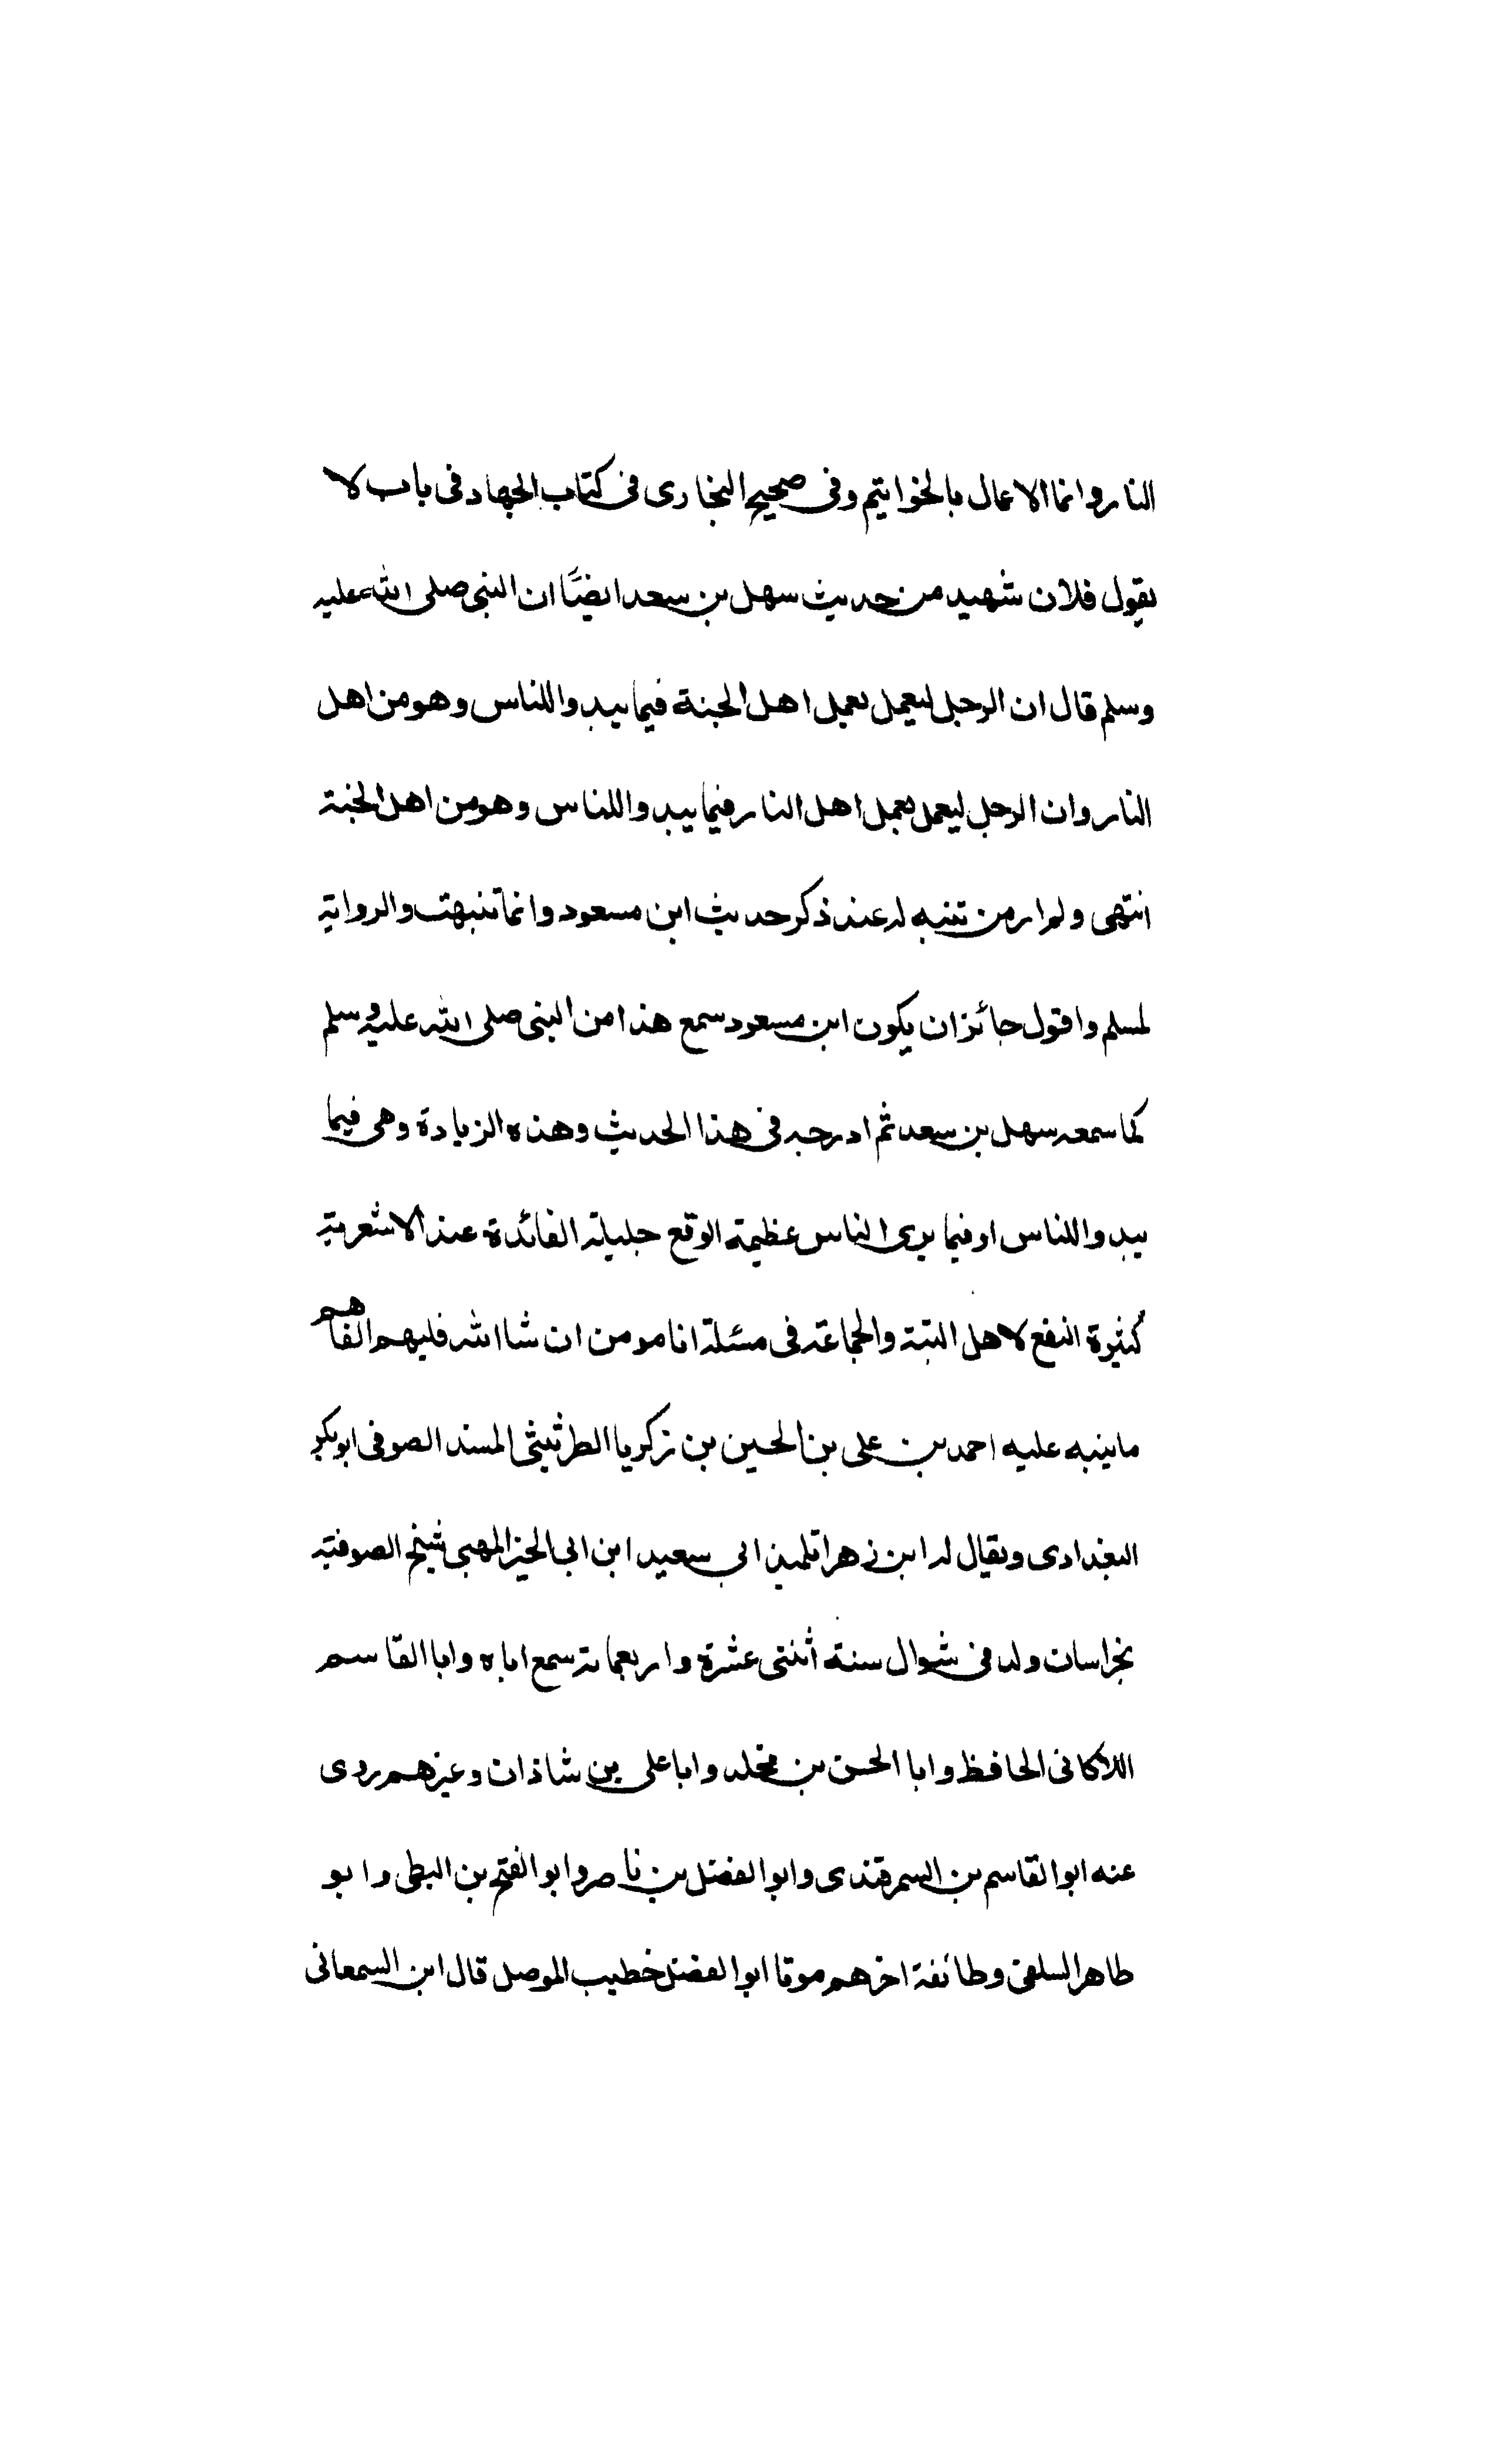 النار وانما الاعمال بالخواتيم وفى صحيح البخارى فى كتاب الجهاد فى باب لا
يقول فلان شهيد من حديث سهل بن سعد ايضًا ان النبى صلى الله عليه
وسلم قال ان الرجل ليعمل بعمل اهل الجنة فيما يبدوا للناس وهو من اهل
النار وان الرجل ليعمل بعمل اهل النار فيما يبدوا للناس وهو من اهل الجنة
انتهى ولم ار من تنبه له عند ذكر حديث ابن مسعود وانما تنبهت والرواية
لمسلم واقول جائز ان يكون ابن مسعود سمع هذا من النبى صلى الله عليه وسلم
كما سمعه سهل بن سعد ثم ادرجه فى هذا الحديث وهذه الزيادة وهى فيما
يبدوا للناس او فيما يرى الناس عظيمة الوقع جليلة الفائدة عند الاشعرية
كثيرة النفع لاهل السنة والجماعة فى مسئلة انا مومن ان شا الله فليهم الفاهم
ما ينبه عليه احمد بن على بن الحسين بن زكريا الطرثيثى المسند الصوفى ابو بكر
البغدادى ويقال له ابن زهرا تلميذ ابى سعيد ابن ابى الخير المهبى شيخ الصوفية
بخراسان ولد فى شوال سنة اثنتى عشرة واربعماية سمع اباه وابا القاسم
اللالكانى الحافظ وابا الحسن بن مخلد وابا على بن شاذان وغيرهم روى
عنه ابو القاسم بن السمرقندى وابو الفضل بن ناصر وابو الفتح بن البطى وابو
طاهر السلفى وطائفة اخرهم موتا ابو الفضل خطيب الموصل قال ابن السمعانى